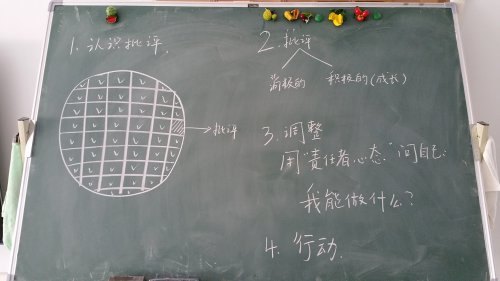 1. 认识批评.
批评
2. 批评
消极的 积极的(成长)
3. 调整
用"责任者心态"问自己:
我能做什么?
4. 行动.